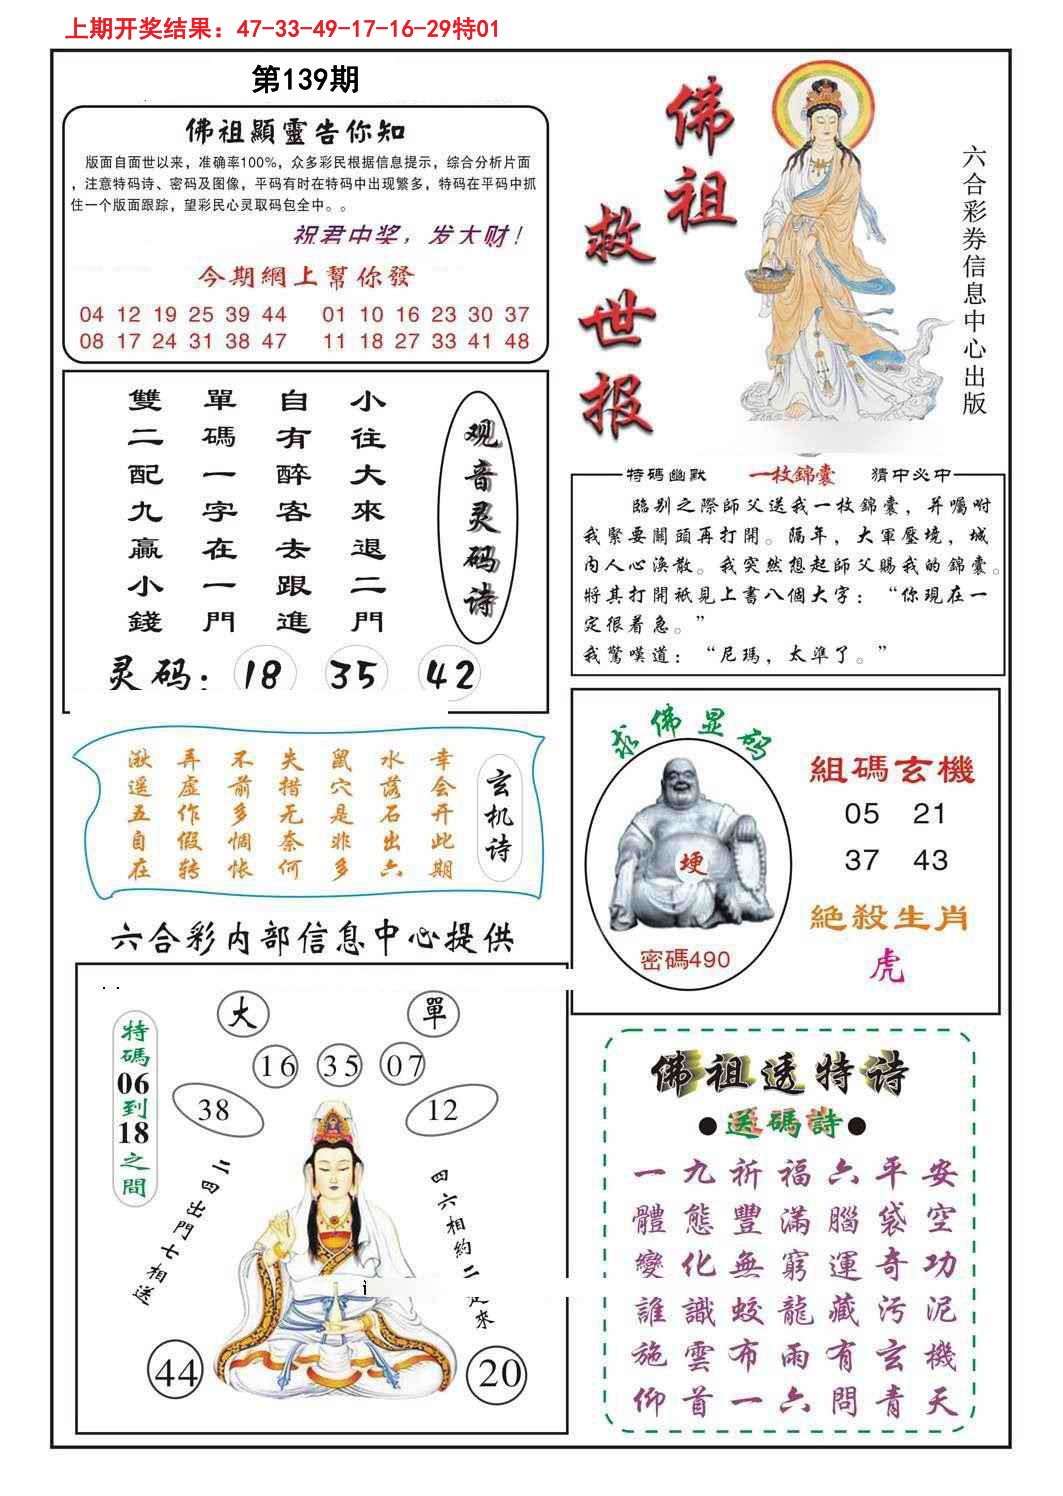 上期开奖结果：47-33-49-17-16-29特01
第139期
佛祖顯靈告你知
版面自面世以来，准确率100%，众多彩民根据信息提示，综合分析片面
，注意特码诗、密码及图像，平码有时在特码中出现繁多，特码在平码中抓
住一个版面跟踪，望彩民心灵取码包全中。。
祝君中奖，发大财！
今期網上幫你發
04 12 19 25 39 44 01 10 16 23 30 37
08 17 24 31 38 47 11 18 27 33 41 48
佛祖
救世报
六合彩券信息中心出版
观音灵码诗
小往大來退二門
自有醉客去跟進
單碼一字在一門
雙二配九贏小錢
灵码：18 35 42
特碼幽默 一枚錦囊 猜中必中
臨别之際師父送我一枚錦囊，并囑咐
我緊要關頭再打開。隔年，大軍壓境，城
内人心渙散。我突然想起師父賜我的錦囊。
將其打開衹見上書八個大字：“你現在一
定很着急。”
我驚嘆道：“尼瑪，太準了。”
玄机诗
幸会开此期
水落石出六
鼠穴是非多
失措无奈何
不前多惆怅
弄虚作假转
湫遥五自在
求佛显码
埂
密碼490
組碼玄機
05 21
37 43
絕殺生肖
虎
六合彩内部信息中心提供
特碼06到18之間
大 單
16 35 07
38 12
二四出門七相送
四六相約二
來
44 20
佛祖透特诗
●送碼詩●
一九祈福六平安
體態豐滿腦袋空
變化無窮運奇功
誰識蛟龍藏污泥
施雲布雨有玄機
仰首一六問青天